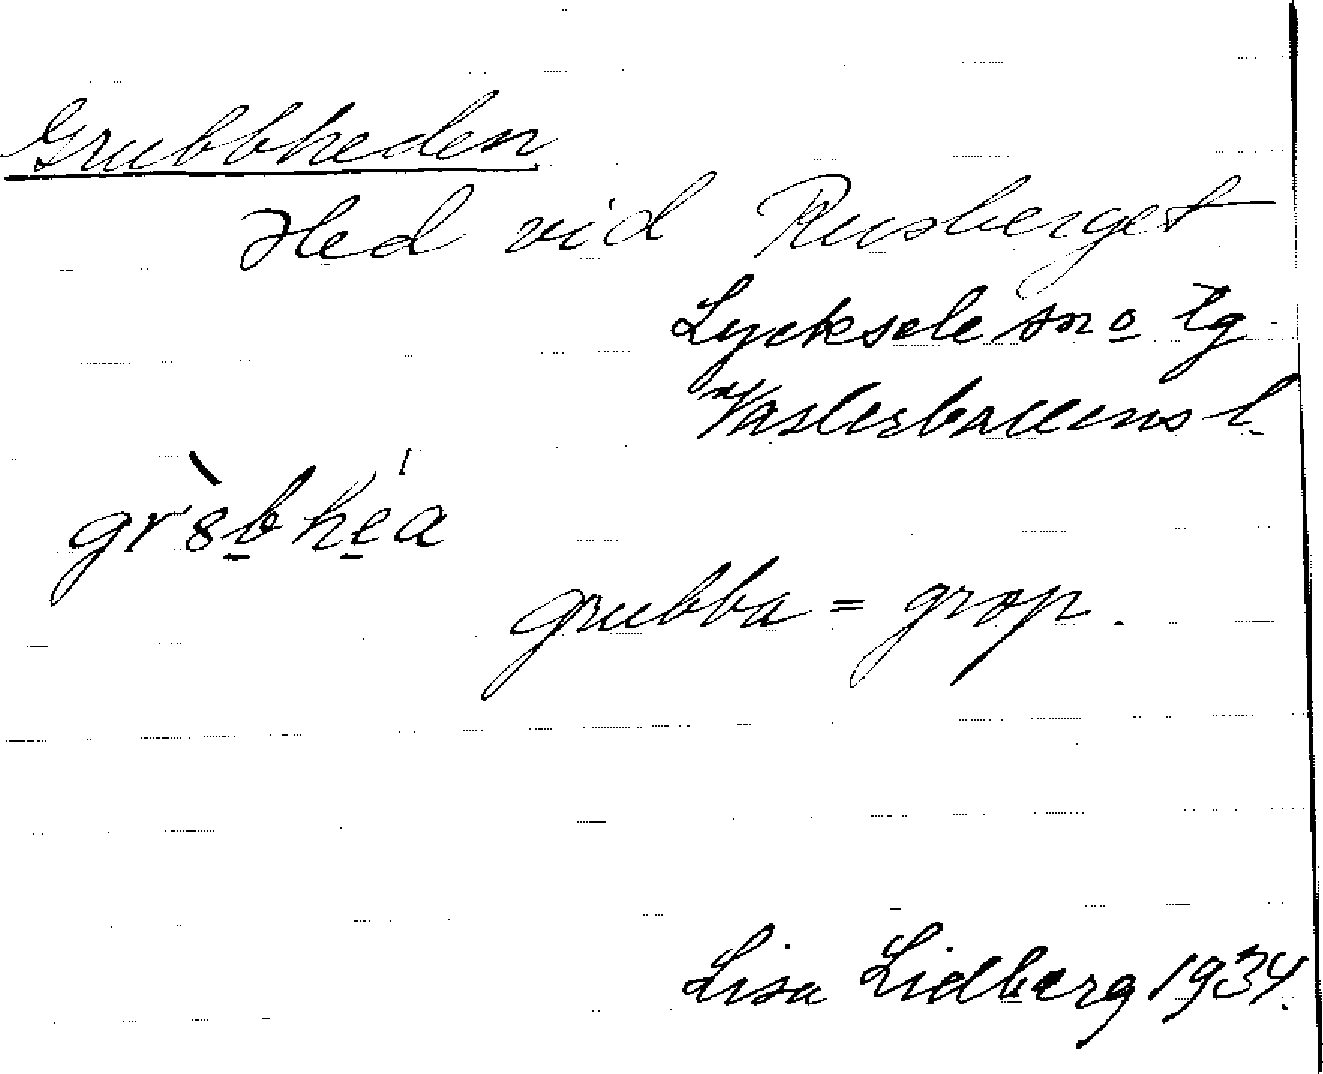 Grubbheden
Hed vid Rusberget
Lycksele sn o tg
Västerbottens l.
grubba = grop.
Lisa Lidberg 1934.